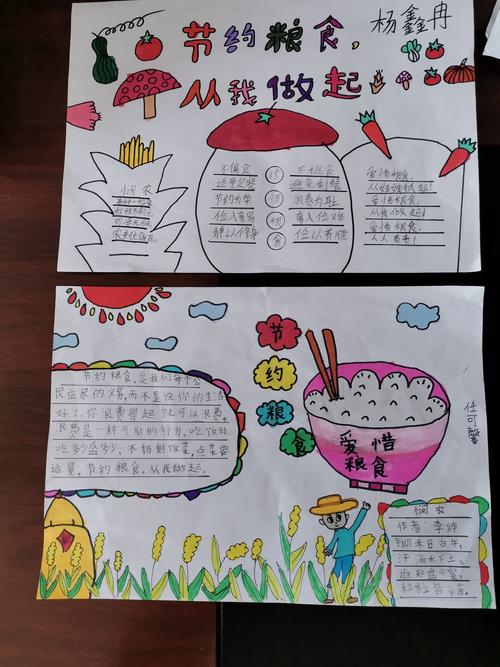 节约粮食,
杨鑫冉
从我做起
悯农
春种一粒粟
秋收万颗子
四海无闲田
农夫犹饿死
不偏食
适量定餐
节约为荣
俭入奢易
静以修身
珍
惜
粮
食
不挑食
避免剩餐
浪费为耻
奢入俭难
俭以养德
爱惜粮食,
从娃娃抓起!
爱惜粮食,
从我做起!
爱惜粮食,
人人有责!
节
约
粮
食
任可馨
节约粮食,是我们每个公
民应尽的义务,而不是说你的生活
好了,你浪费得起?才可以浪费。
浪费是一种可耻的行为,吃饭时
吃多少盛多少,不扔剩饭菜,点菜要
适量。节约粮食,从我做起。
爱惜
粮食
悯农
作者:李绅
锄禾日当午,
汗滴禾下土。
谁知盘中餐,
粒粒皆辛苦。